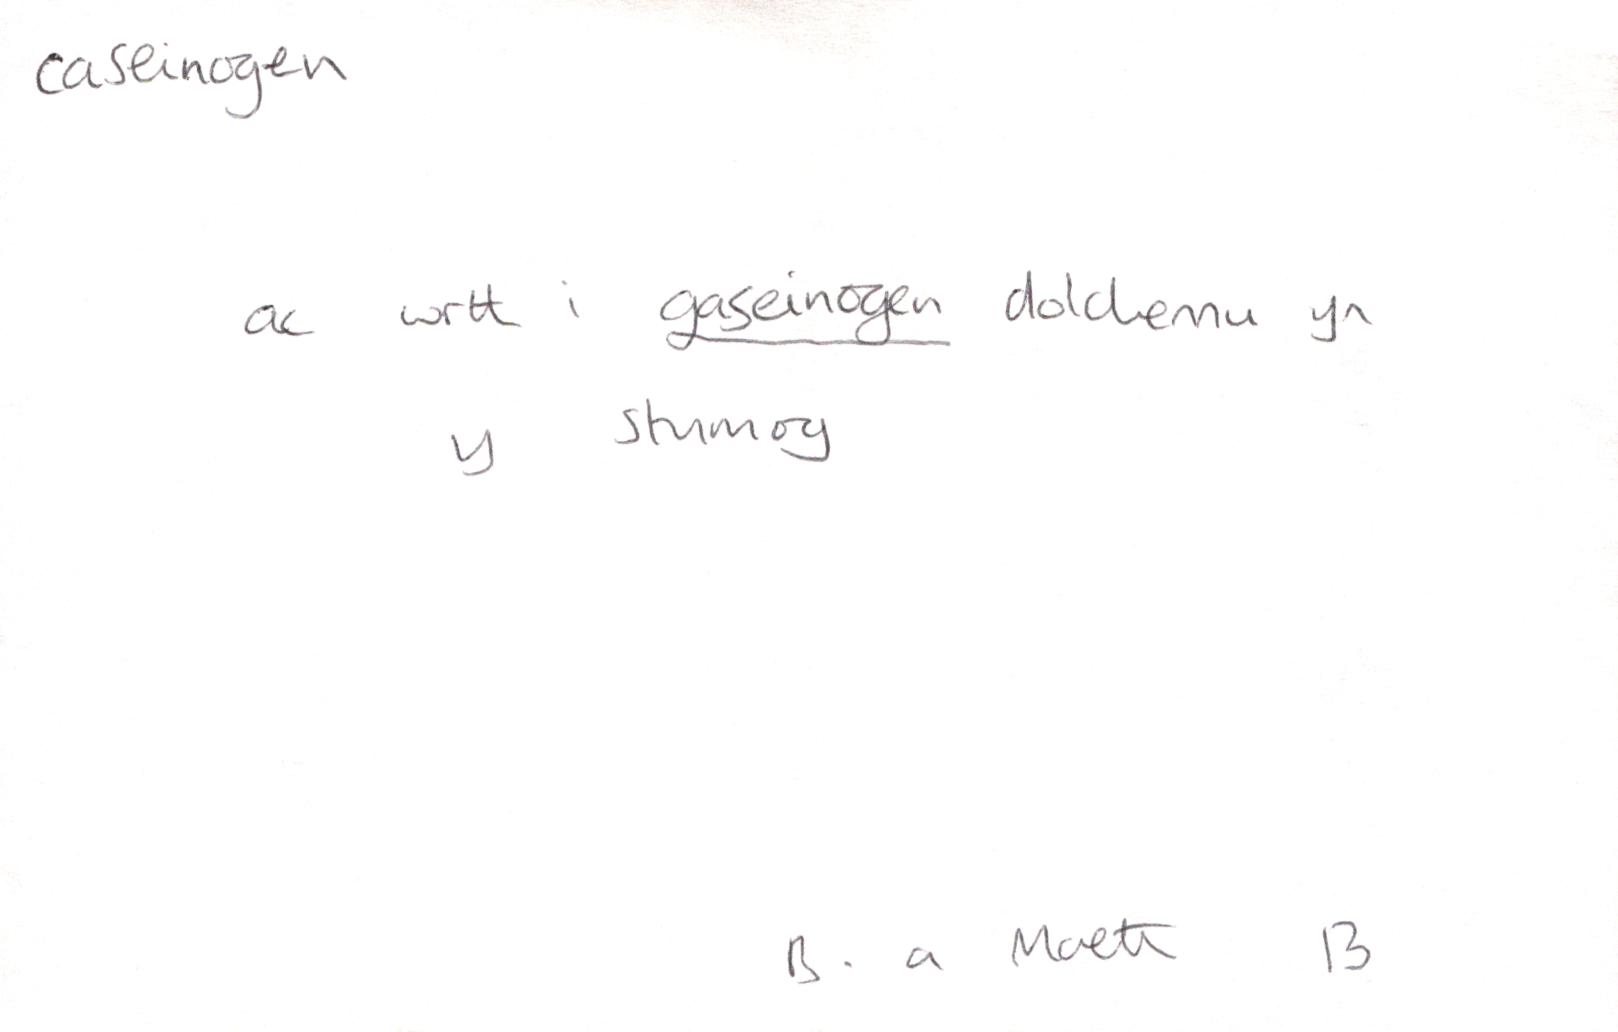 caseinogen
ac wrth i gaseinogen dolchennu yn
y stumog
B. a Maeth 13